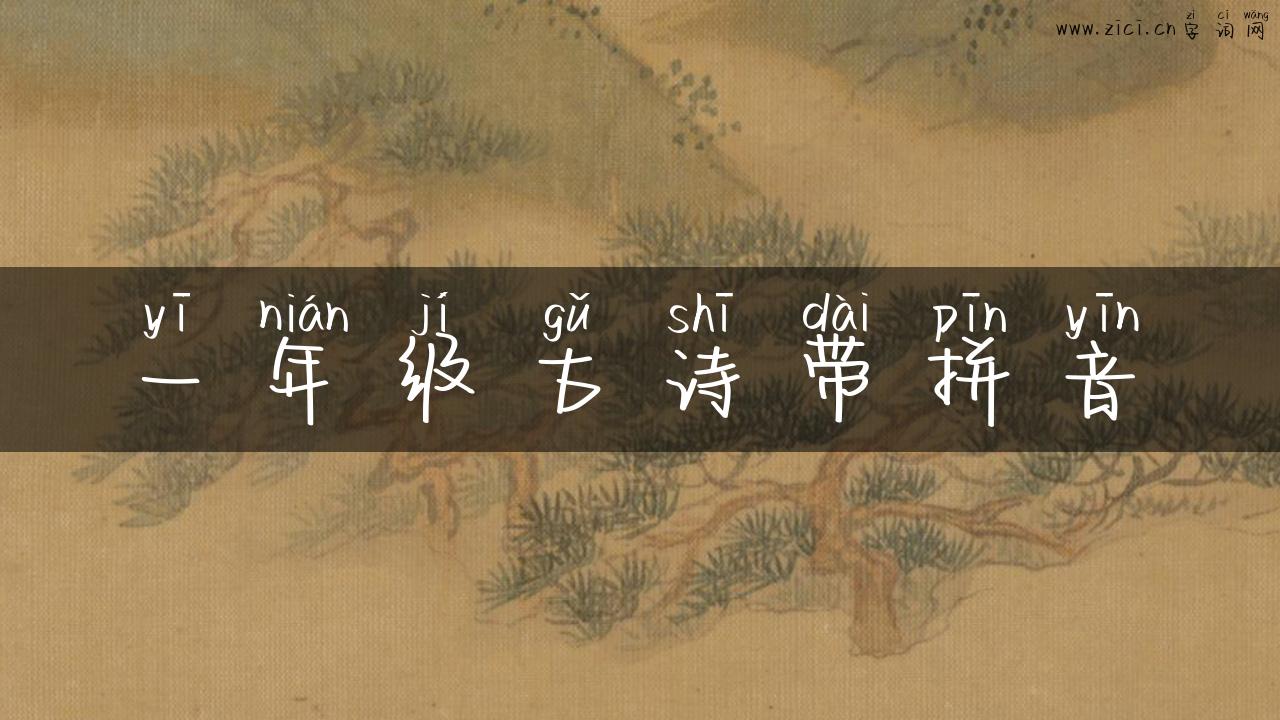 zì cí wǎng
www.zici.cn 字词网
yī nián jí gǔ shī dài pīn yīn
一年级古诗带拼音